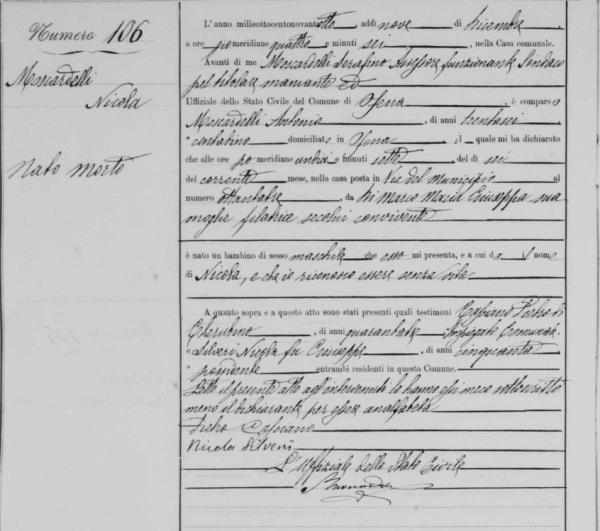 Numero 106
Moscardelli
Nicola
Nato morto
L' anno milleottocentonovantotto, addì nove di dicembre,
a ore pomeridiane quattro e minuti sei, nella Casa comunale.
Avanti di me Moscardelli Serafino Assessore funzionante Sindaco
pel titolare mancante ed
Uffiziale dello Stato Civile del Comune di Ofena, è comparso
Moscardelli Antonio, di anni trentasei
contadino domiciliato in Ofena, il quale mi ha dichiarato
che alle ore pomeridiane undici e minuti sette, del dì sei
del corrente mese, nella casa posta in Via del Municipio al
numero ottantatre, da Di Mario Maria Giuseppa sua
moglie filatrice secolui convivente
è nato un bambino di sesso maschile che esso mi presenta, e a cui dà il nome
di Nicola, e che io riconosco essere senza vita
A quanto sopra e a questo atto sono stati presenti quali testimoni Cassiano Pietro di
Cherubino, di anni quarantatre Impiegato Comunale
Silveri Nicola fu Giuseppe, di anni cinquanta
possidente entrambi residenti in questo Comune.
Letto il presente atto agl'intervenuti lo hanno essi meco sottoscritto
meno il dichiarante per essere analfabeta
Pietro Cassiano
Nicola Silveri
L'Uffiziale dello Stato Civile